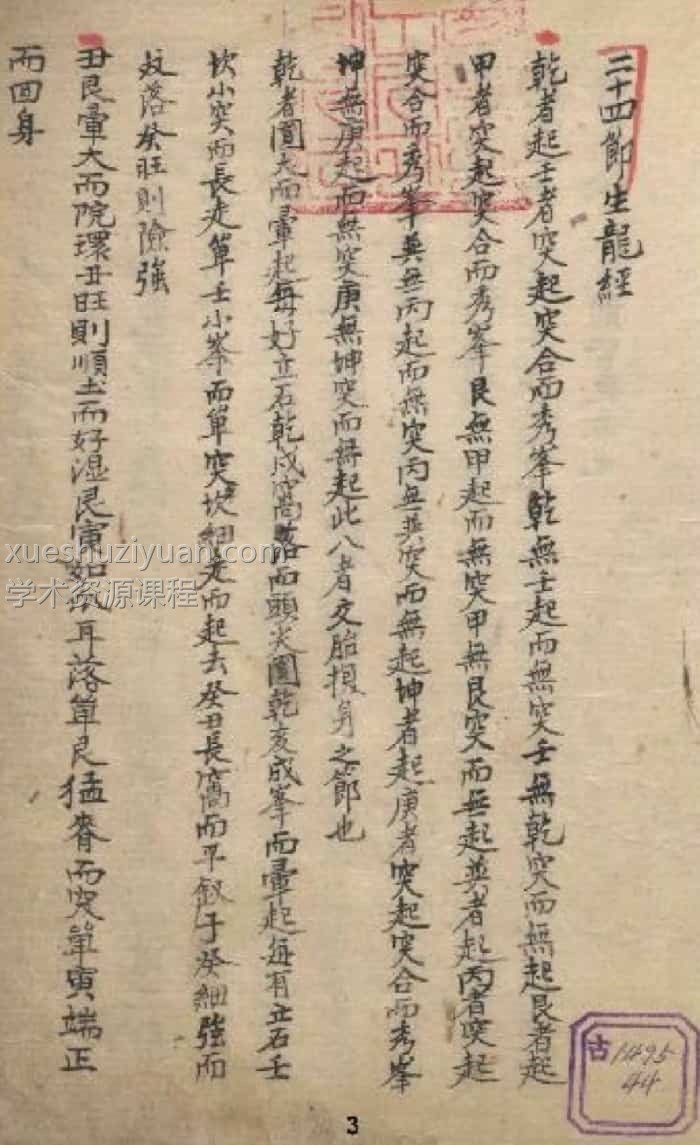 二十四節生龍經
乾者起壬者突起突合而秀峯乾無壬起而無突壬無乾突而無起艮者起
甲者突起突合而秀峯艮無甲起而無突甲無艮突而無起巽者起丙者突起
突合而秀峯巽無丙起而無突丙無巽突而無起坤者起庚者突起突合而秀峯
坤無庚起而無突庚無坤突而無起此八者交胎損身之節也
乾者圓大而暈起每好立石乾戌窩落而頭尖圓乾亥成峯而暈起每有立石壬
坎小突而長走單壬小峯而單突坎細走而起去癸丑長窩而平釵子癸細強而
落癸旺則險強
丑艮暈大而院環丑旺則順出而好湿艮寅如耳落單艮猛脊而突單寅端正
而回身
xueshuziyuan.com
学术资源课程
古
1495
44
3